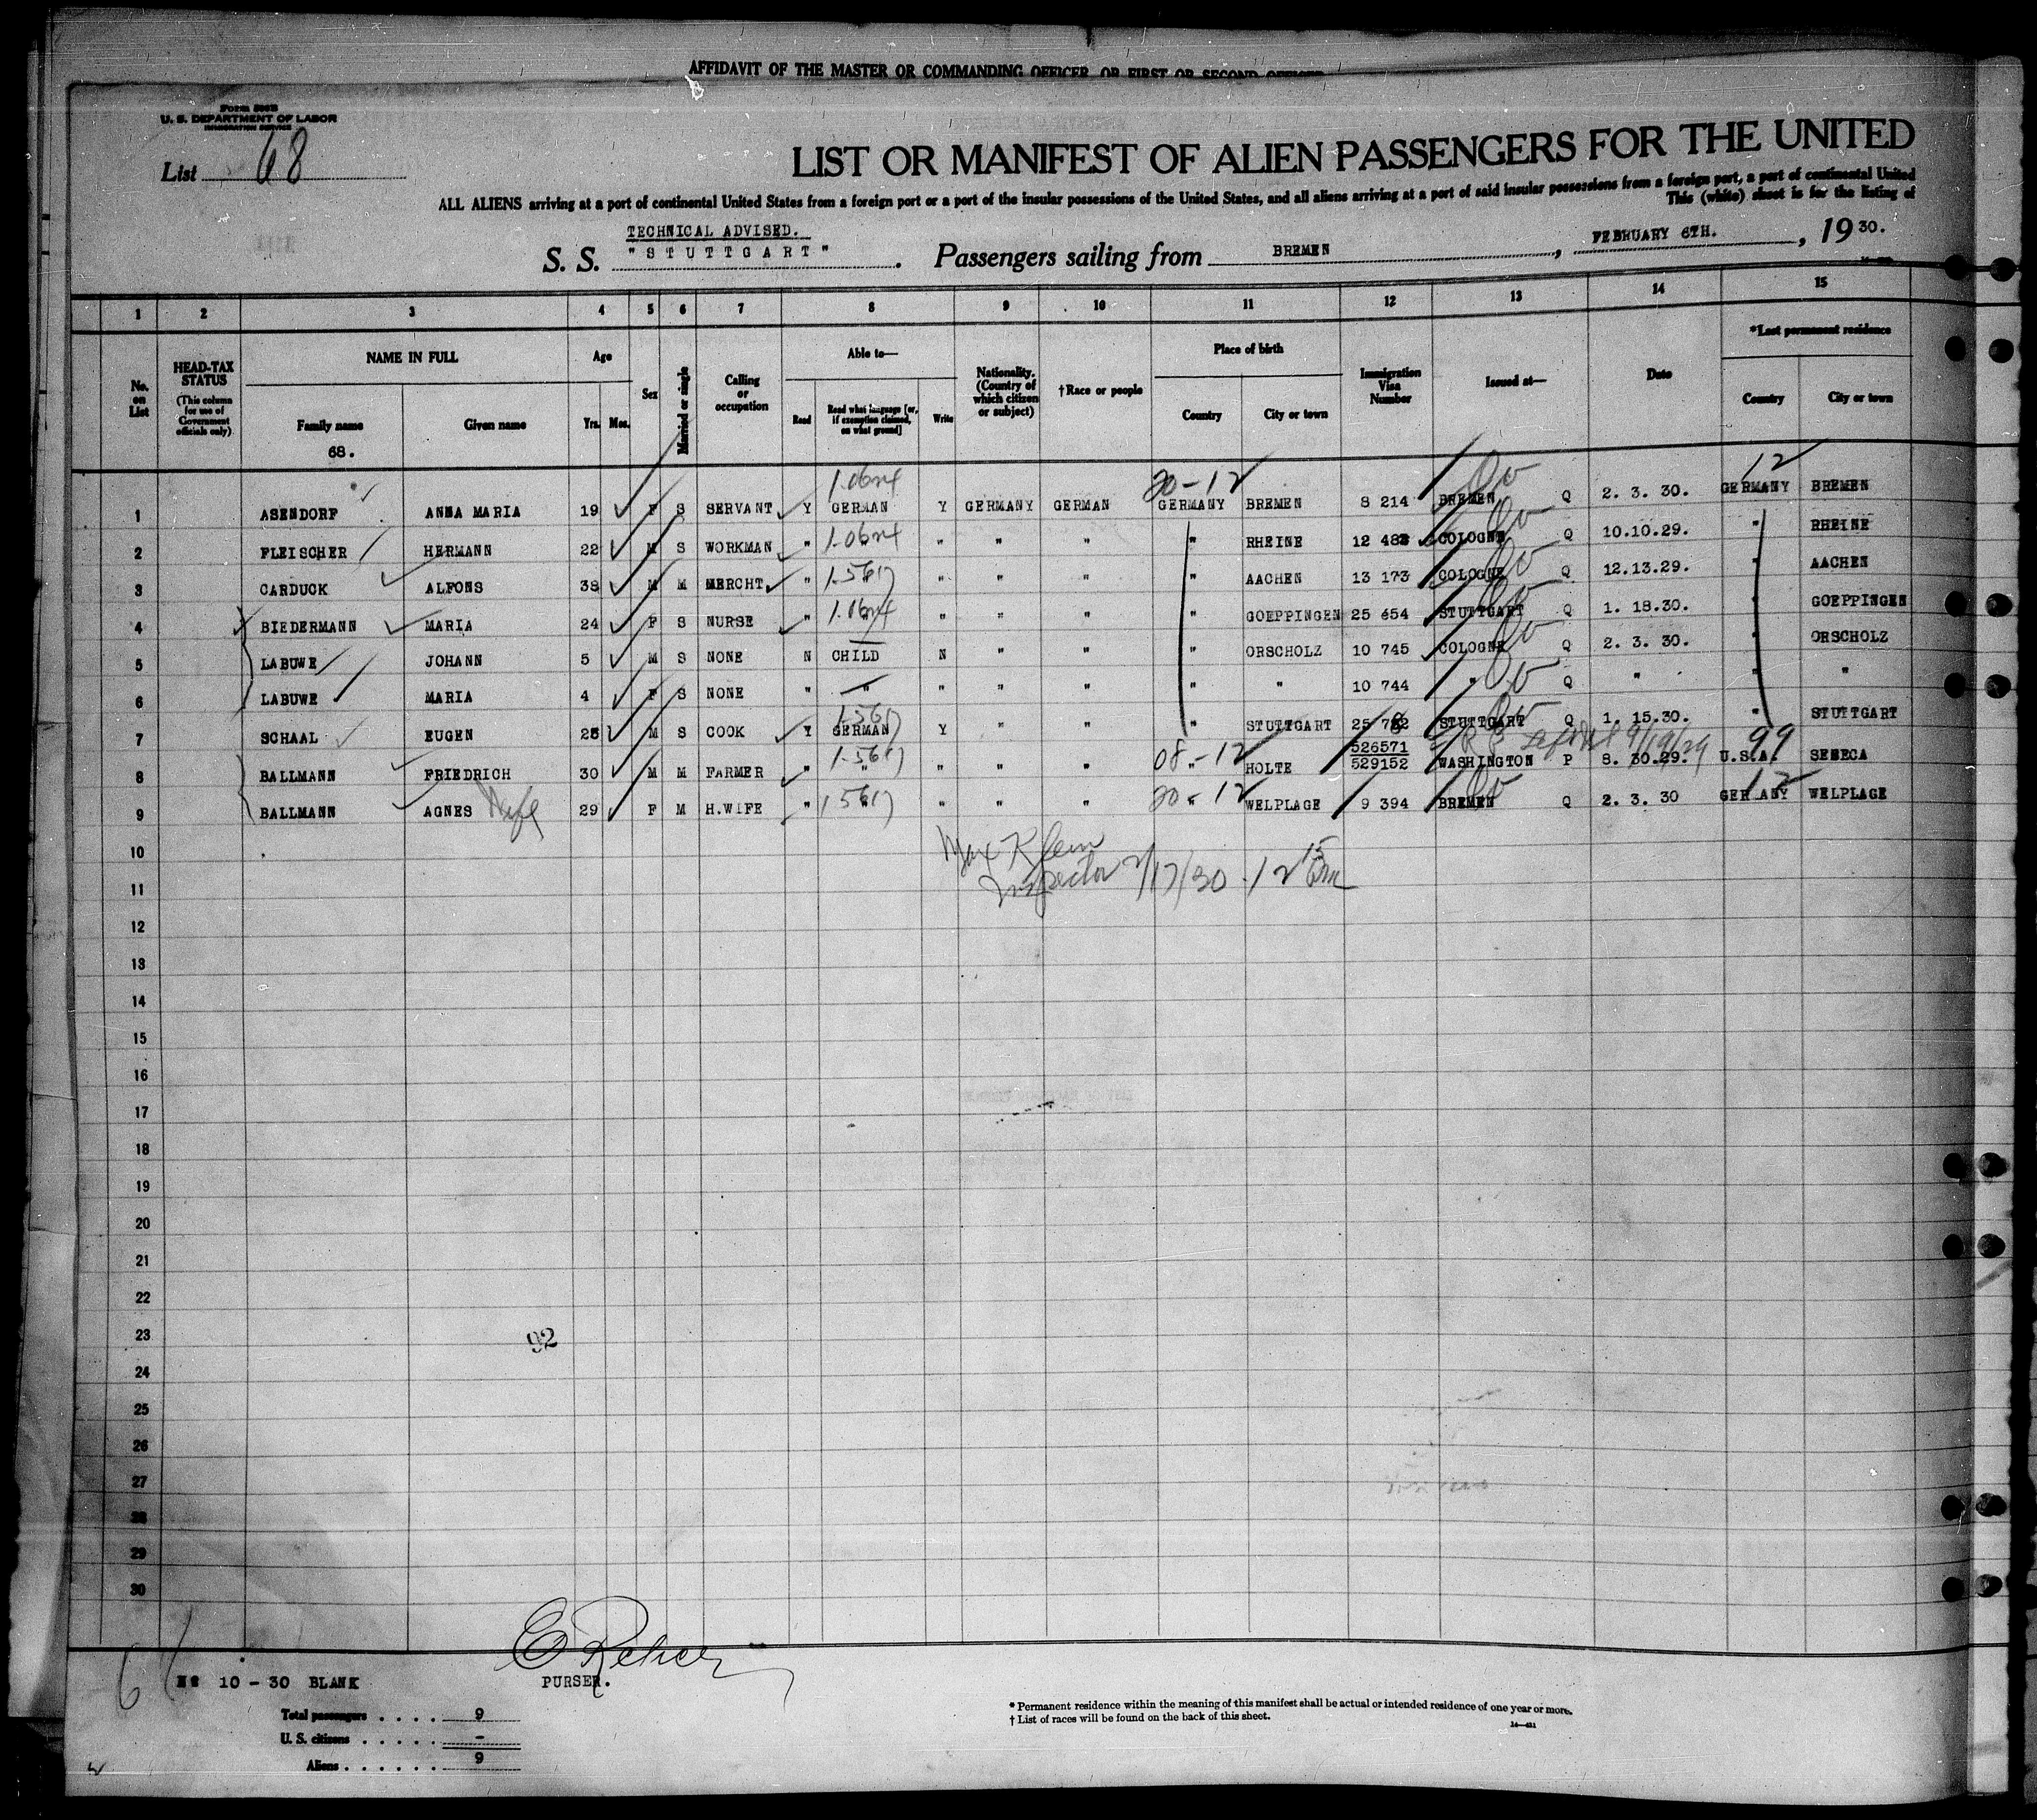 AFFIDAVIT OF THE MASTER OR COMMANDING OFFICER OR FIRST OR SECOND OFFICER
U. S. DEPARTMENT OF LABOR
IMMIGRATION SERVICE
List 68
LIST OR MANIFEST OF ALIEN PASSENGERS FOR THE UNITED
ALL ALIENS arriving at a port of continental United States from a foreign port or a port of the insular possessions of the United States, and all aliens arriving at a port of said insular possessions from a foreign port, a part of continental United
This (white) sheet is for the listing of
TECHNICAL ADVISED.
S. S. "STUTTGART". Passengers sailing from BREMEN, FEBRUARY 6TH., 1930.
1 2 3 4 5 6 7 8 9 10 11 12 13 14 15
No. on List
HEAD-TAX STATUS
(This column for use of Government officials only)
NAME IN FULL
Family name
Given name
68.
Age
Yrs. Mos.
Sex
Married or single
Calling or occupation
Able to—
Read
Read what language [or, if exemption claimed, on what ground]
Write
Nationality. (Country of which citizen or subject)
†Race or people
Place of birth
Country
City or town
Immigration Visa Number
Issued at—
Date
*Last permanent residence
Country
City or town
1.0624 20-12 12
1 ASENDORF ANNA MARIA 19 F S SERVANT Y GERMAN Y GERMANY GERMAN GERMANY BREMEN 8 214 BREMEN Q 2. 3. 30. GERMANY BREMEN
2 FLEISCHER HERMANN 22 M S WORKMAN " 1.0624 " " " " RHEINE 12 483 COLOGNE Q 10.10.29. " RHEINE
3 CARDUCK ALFONS 38 M M MERCHT. " 1-5617 " " " " AACHEN 13 173 COLOGNE Q 12.13.29. " AACHEN
4 BIEDERMANN MARIA 24 F S NURSE " 1.0624 " " " " GOEPPINGEN 25 654 STUTTGART Q 1. 18.30. " GOEPPINGEN
5 LABUWE JOHANN 5 M S NONE N CHILD N " " " ORSCHOLZ 10 745 COLOGNE Q 2. 3. 30. " ORSCHOLZ
6 LABUWE MARIA 4 F S NONE " " " " " " " 10 744 " Q " " "
1-5617
7 SCHAAL EUGEN 25 M S COOK Y GERMAN Y " " " STUTTGART 25 782 STUTTGART Q 1. 15.30. " STUTTGART
1-5617 08-12 526571 9/19/29 99
8 BALLMANN FRIEDRICH 30 M M FARMER " " " " " " HOLTE 529152 WASHINGTON P 8. 30.29. U.S.A. SENECA
20-12 12
9 BALLMANN AGNES Wife 29 F M H.WIFE " 1 5617 " " " " WELPLAGE 9 394 BREMEN Q 2. 3. 30 GERMANY WELPLAGE
10
Max Klein
11
Inspector 2/17/30 12 15 Pm
12
13
14
15
16
17
18
19
20
21
22
23
92
24
25
26
27
28
29
30
E Reher
PURSER.
No 10 - 30 BLANK
Total passengers . . . . 9
U. S. citizens . . . . . -
Aliens . . . . . . 9
* Permanent residence within the meaning of this manifest shall be actual or intended residence of one year or more.
† List of races will be found on the back of this sheet.